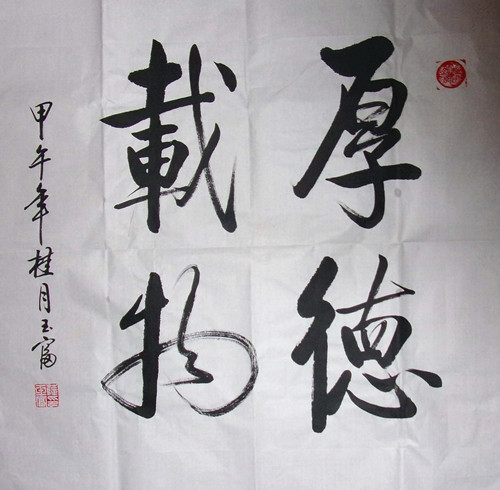 厚德
載物
甲午年桂月玉富